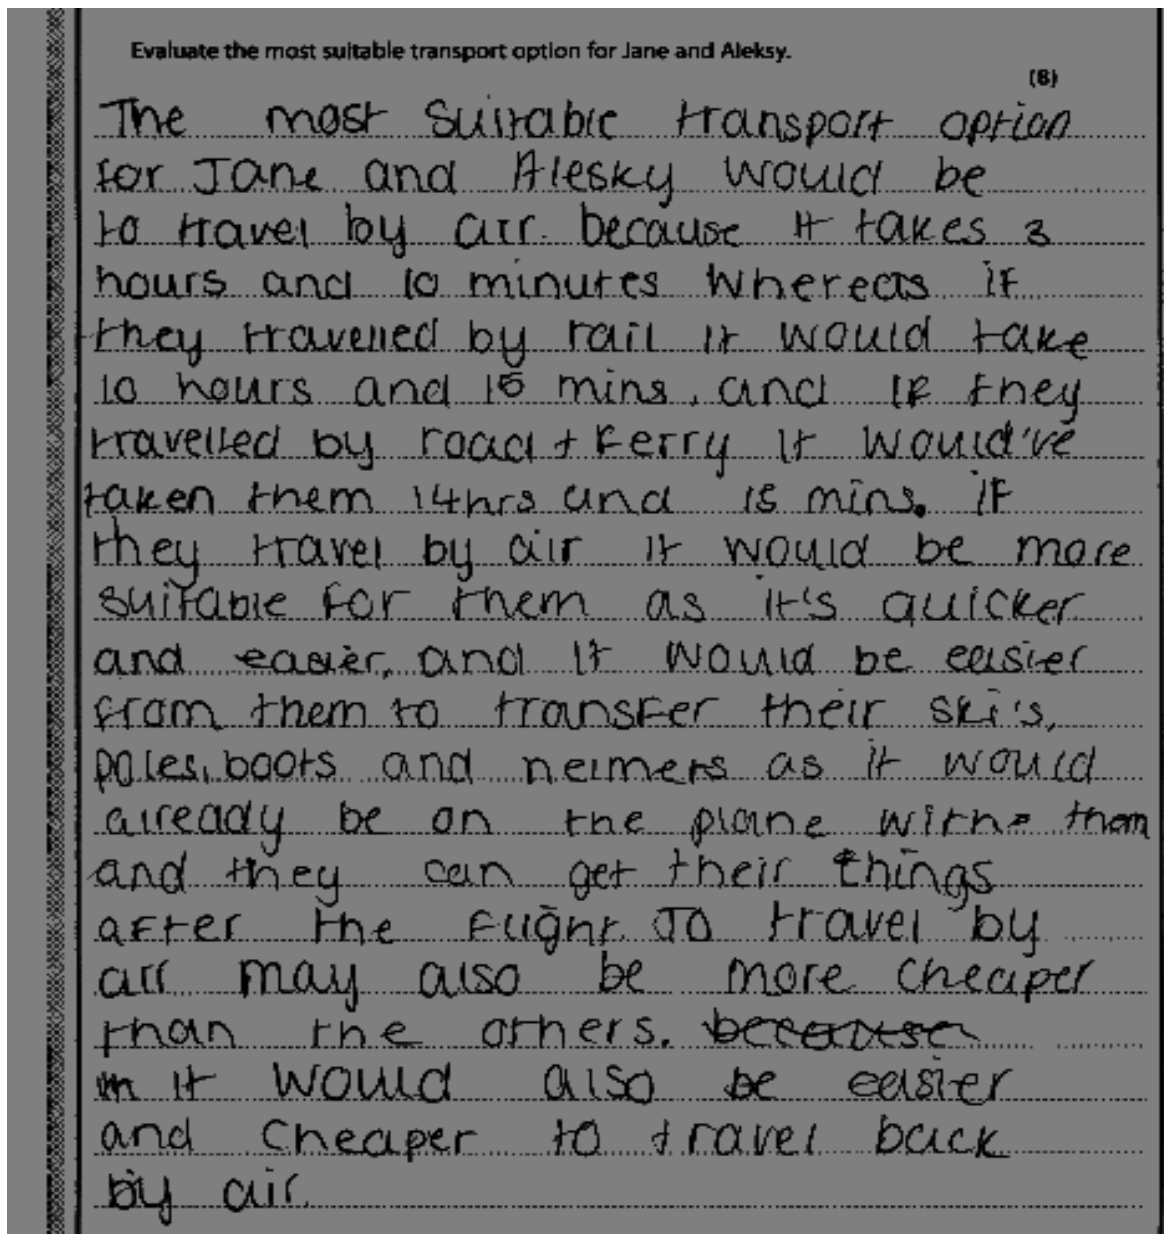 Evaluate the most suitable transport option for Jane and Aleksy.
(8)
The most suitable transport option
for Jane and Alesky would be
to travel by air. because it takes 3
hours and 10 minutes whereas if
they travelled by rail it would take
10 hours and 15 mins, and if they
travelled by road + ferry it would've
taken them 14hrs and 15 mins. if
they travel by air it would be more
suitable for them as it's quicker
and easier, and it would be easier
from them to transfer their ski's,
poles, boots and helmets as it would
already be on the plane with them
and they can get their things
after the flight. To travel by
air may also be more cheaper
than the others. because
it would also be easier
and cheaper to travel back
by air.